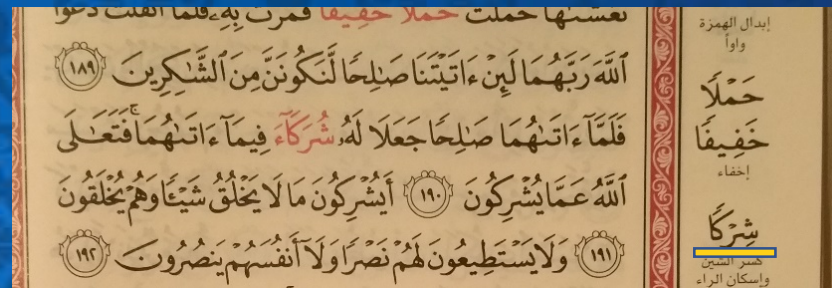 تَغَشَّىٰهَا حَمَلَتْ حَمْلًا خَفِيفًا فَمَرَّتْ بِهِۦ فَلَمَّا أَثْقَلَت دَّعَوَا
ٱللَّهَ رَبَّهُمَا لَئِنْ ءَاتَيْتَنَا صَٰلِحًا لَّنَكُونَنَّ مِنَ ٱلشَّٰكِرِينَ ١٨٩
فَلَمَّآ ءَاتَىٰهُمَا صَٰلِحًا جَعَلَا لَهُۥ شُرَكَآءَ فِيمَآ ءَاتَىٰهُمَا ۚ فَتَعَٰلَى
ٱللَّهُ عَمَّا يُشْرِكُونَ ١٩٠ أَيُشْرِكُونَ مَا لَا يَخْلُقُ شَيْـًٔا وَهُمْ يُخْلَقُونَ
١٩١ وَلَا يَسْتَطِيعُونَ لَهُمْ نَصْرًا وَلَآ أَنفُسَهُمْ يَنصُرُونَ ١٩٢
إبدال الهمزة
واواً
حَمْلًا
خَفِيفًا
إخفاء
شِرْكًا
كسر الشين
وإسكان الراء